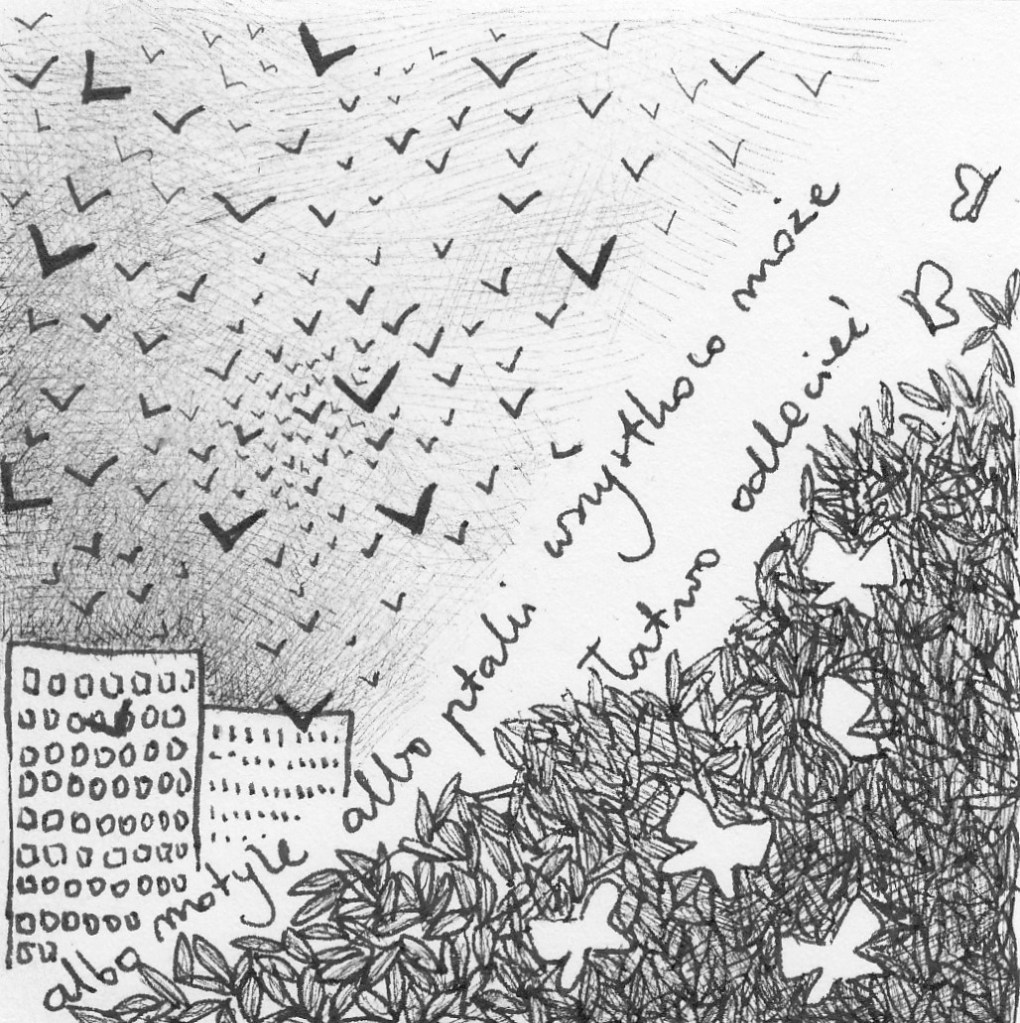 albo motyle albo ptaki wszystko co może
łatwo odlecieć